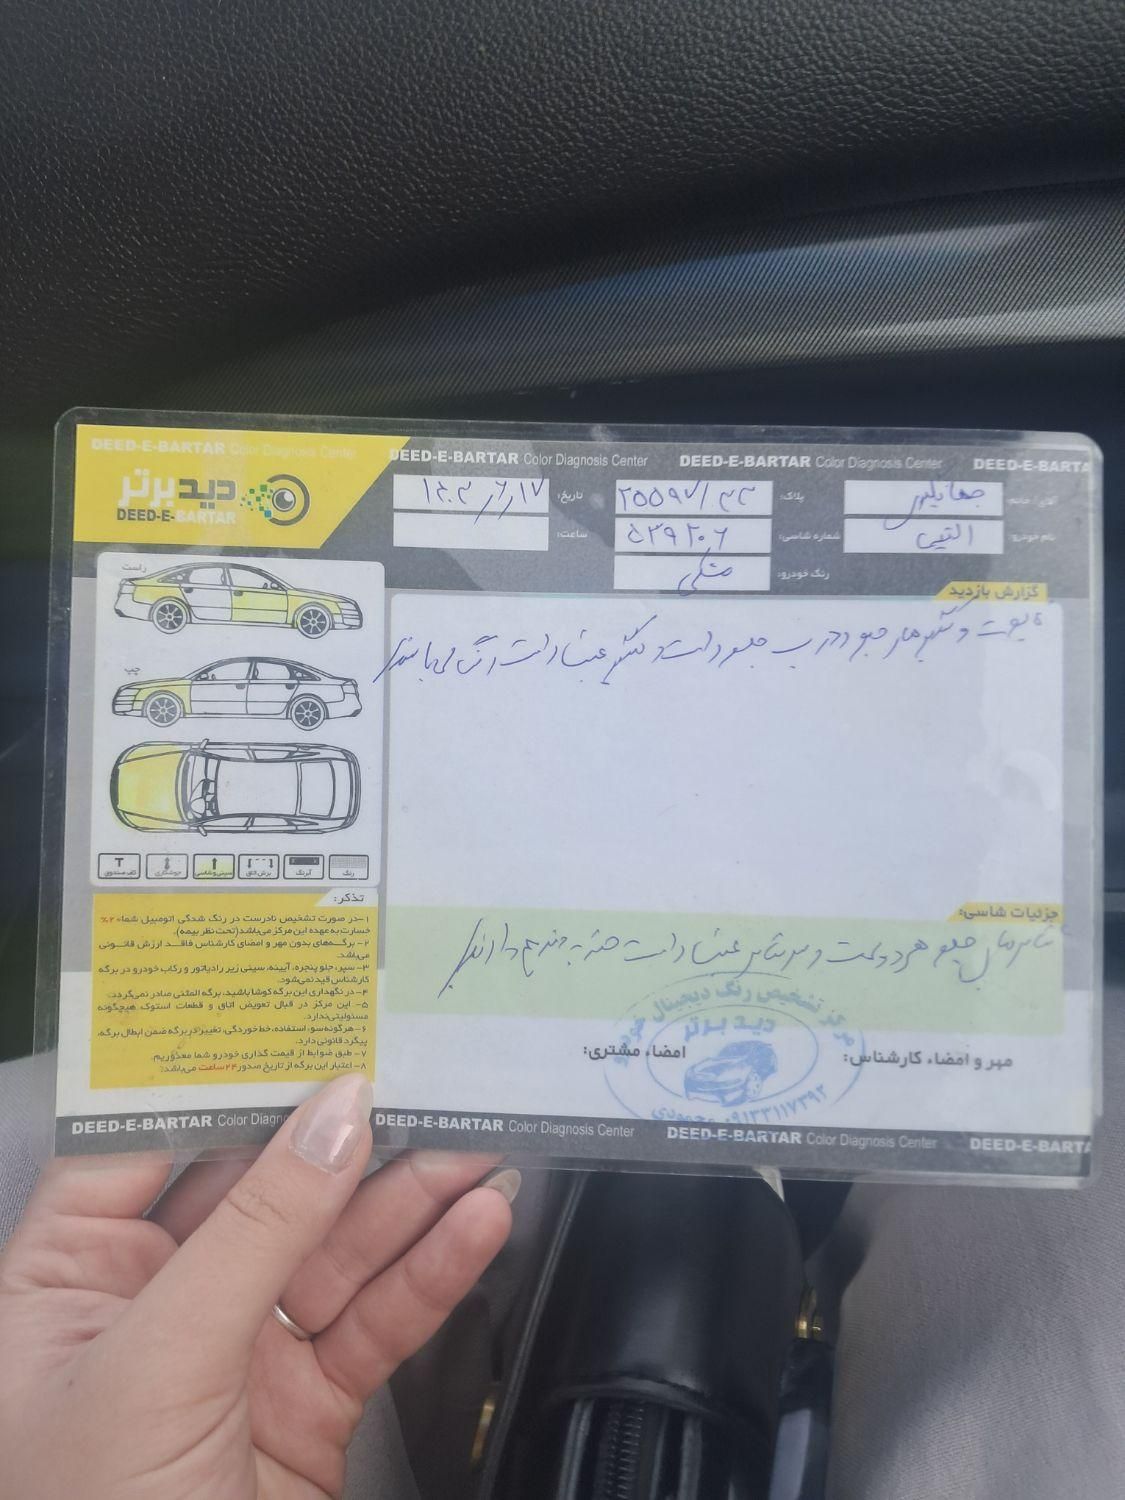 DEED-E-BARTAR Color Diagnosis Center
DEED-E-BARTAR Color Diagnosis Center
DEED-E-BARTAR Color Diagnosis Center
DEED-E-BARTA
دید برتر
DEED-E-BARTAR
تاریخ: ۱۴۰۳/۶/۱۷
ساعت:
پلاک:
شماره شاسی: ۵۳۹۲۰۶
رنگ خودرو: مشکی
آقای/خانم:
نام خودرو: التیمی
راست
چپ
رنگ
آبرنگ
برش اتاق
سینی و شاسی
جوشکاری
کف صندوق
گزارش بازدید
کاپوت و گلگیرهای جلو و درب جلو راست و گلگیر عقب راست رنگ می‌باشند
جزئیات شاسی:
شاسی‌های جلو هر دو سمت و سرشاسی عقب راست ضربه جزئی دارند
تذکر:
۱-در صورت تشخیص نادرست در رنگ شدگی اتومبیل شما ۲۰%
خسارت به عهده این مرکز می‌باشد(تحت نظر بیمه).
۲- برگه‌های بدون مهر و امضای کارشناس فاقد ارزش قانونی
می‌باشد.
۳- سپر، جلو پنجره، آیینه، سینی زیر رادیاتور و رکاب خودرو در برگه
کارشناس قید نمی‌شود.
۴- در نگهداری این برگه کوشا باشید، برگه المثنی صادر نمی‌گردد.
۵- این مرکز در قبال تعویض اتاق و قطعات استوک هیچگونه
مسئولیتی ندارد.
۶- هرگونه سوء استفاده، خط خوردگی، تغییر در برگه ضمن ابطال برگه،
پیگرد قانونی دارد.
۷- طبق ضوابط از قیمت گذاری خودرو شما معذوریم.
۸- اعتبار این برگه از تاریخ صدور ۲۴ ساعت می‌باشد.
مهر و امضاء کارشناس:
امضاء مشتری:
مرکز تشخیص رنگ دیجیتال خودرو
دید برتر
۰۹۱۳۳۱۱۷۳۹۲ محمودی
DEED-E-BARTAR Color Diagn
DEED-E-BARTAR Color Diagnosis Center
DEED-E-BARTAR Color Diagnosis Center
DEED-E-BARTA